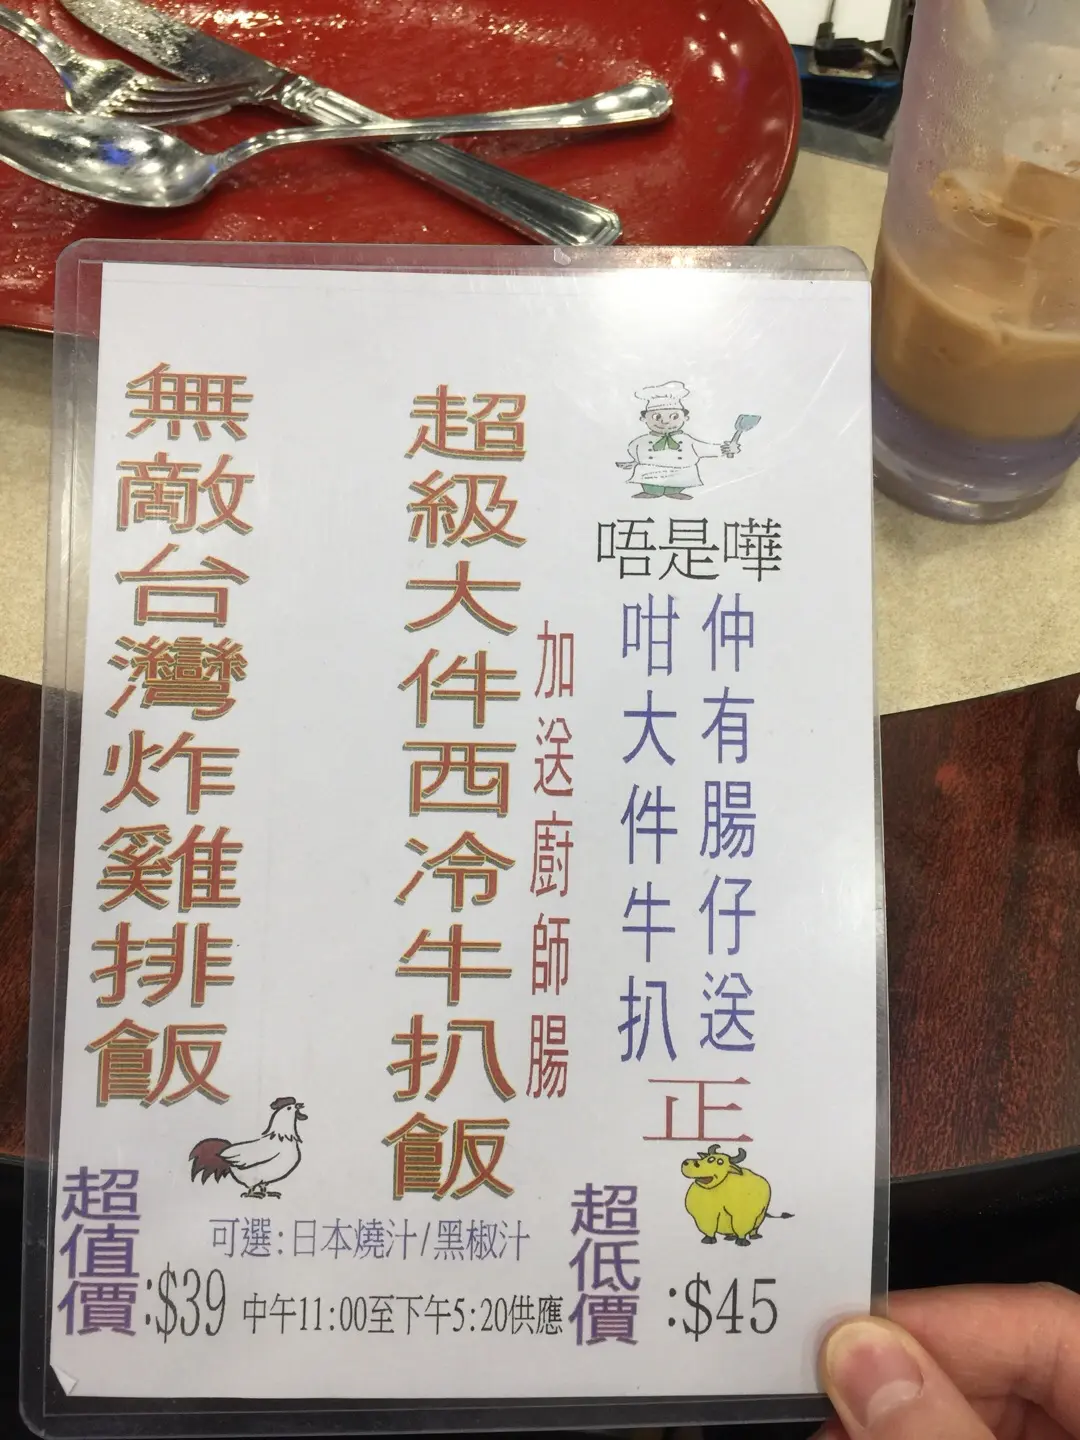 唔是嘩
仲有腸仔送
咁大件牛扒
正
加送廚師腸
超級大件西冷牛扒飯
無敵台灣炸雞排飯
可選:日本燒汁/黑椒汁
超值價:$39
中午11:00至下午5:20供應
超低價:$45